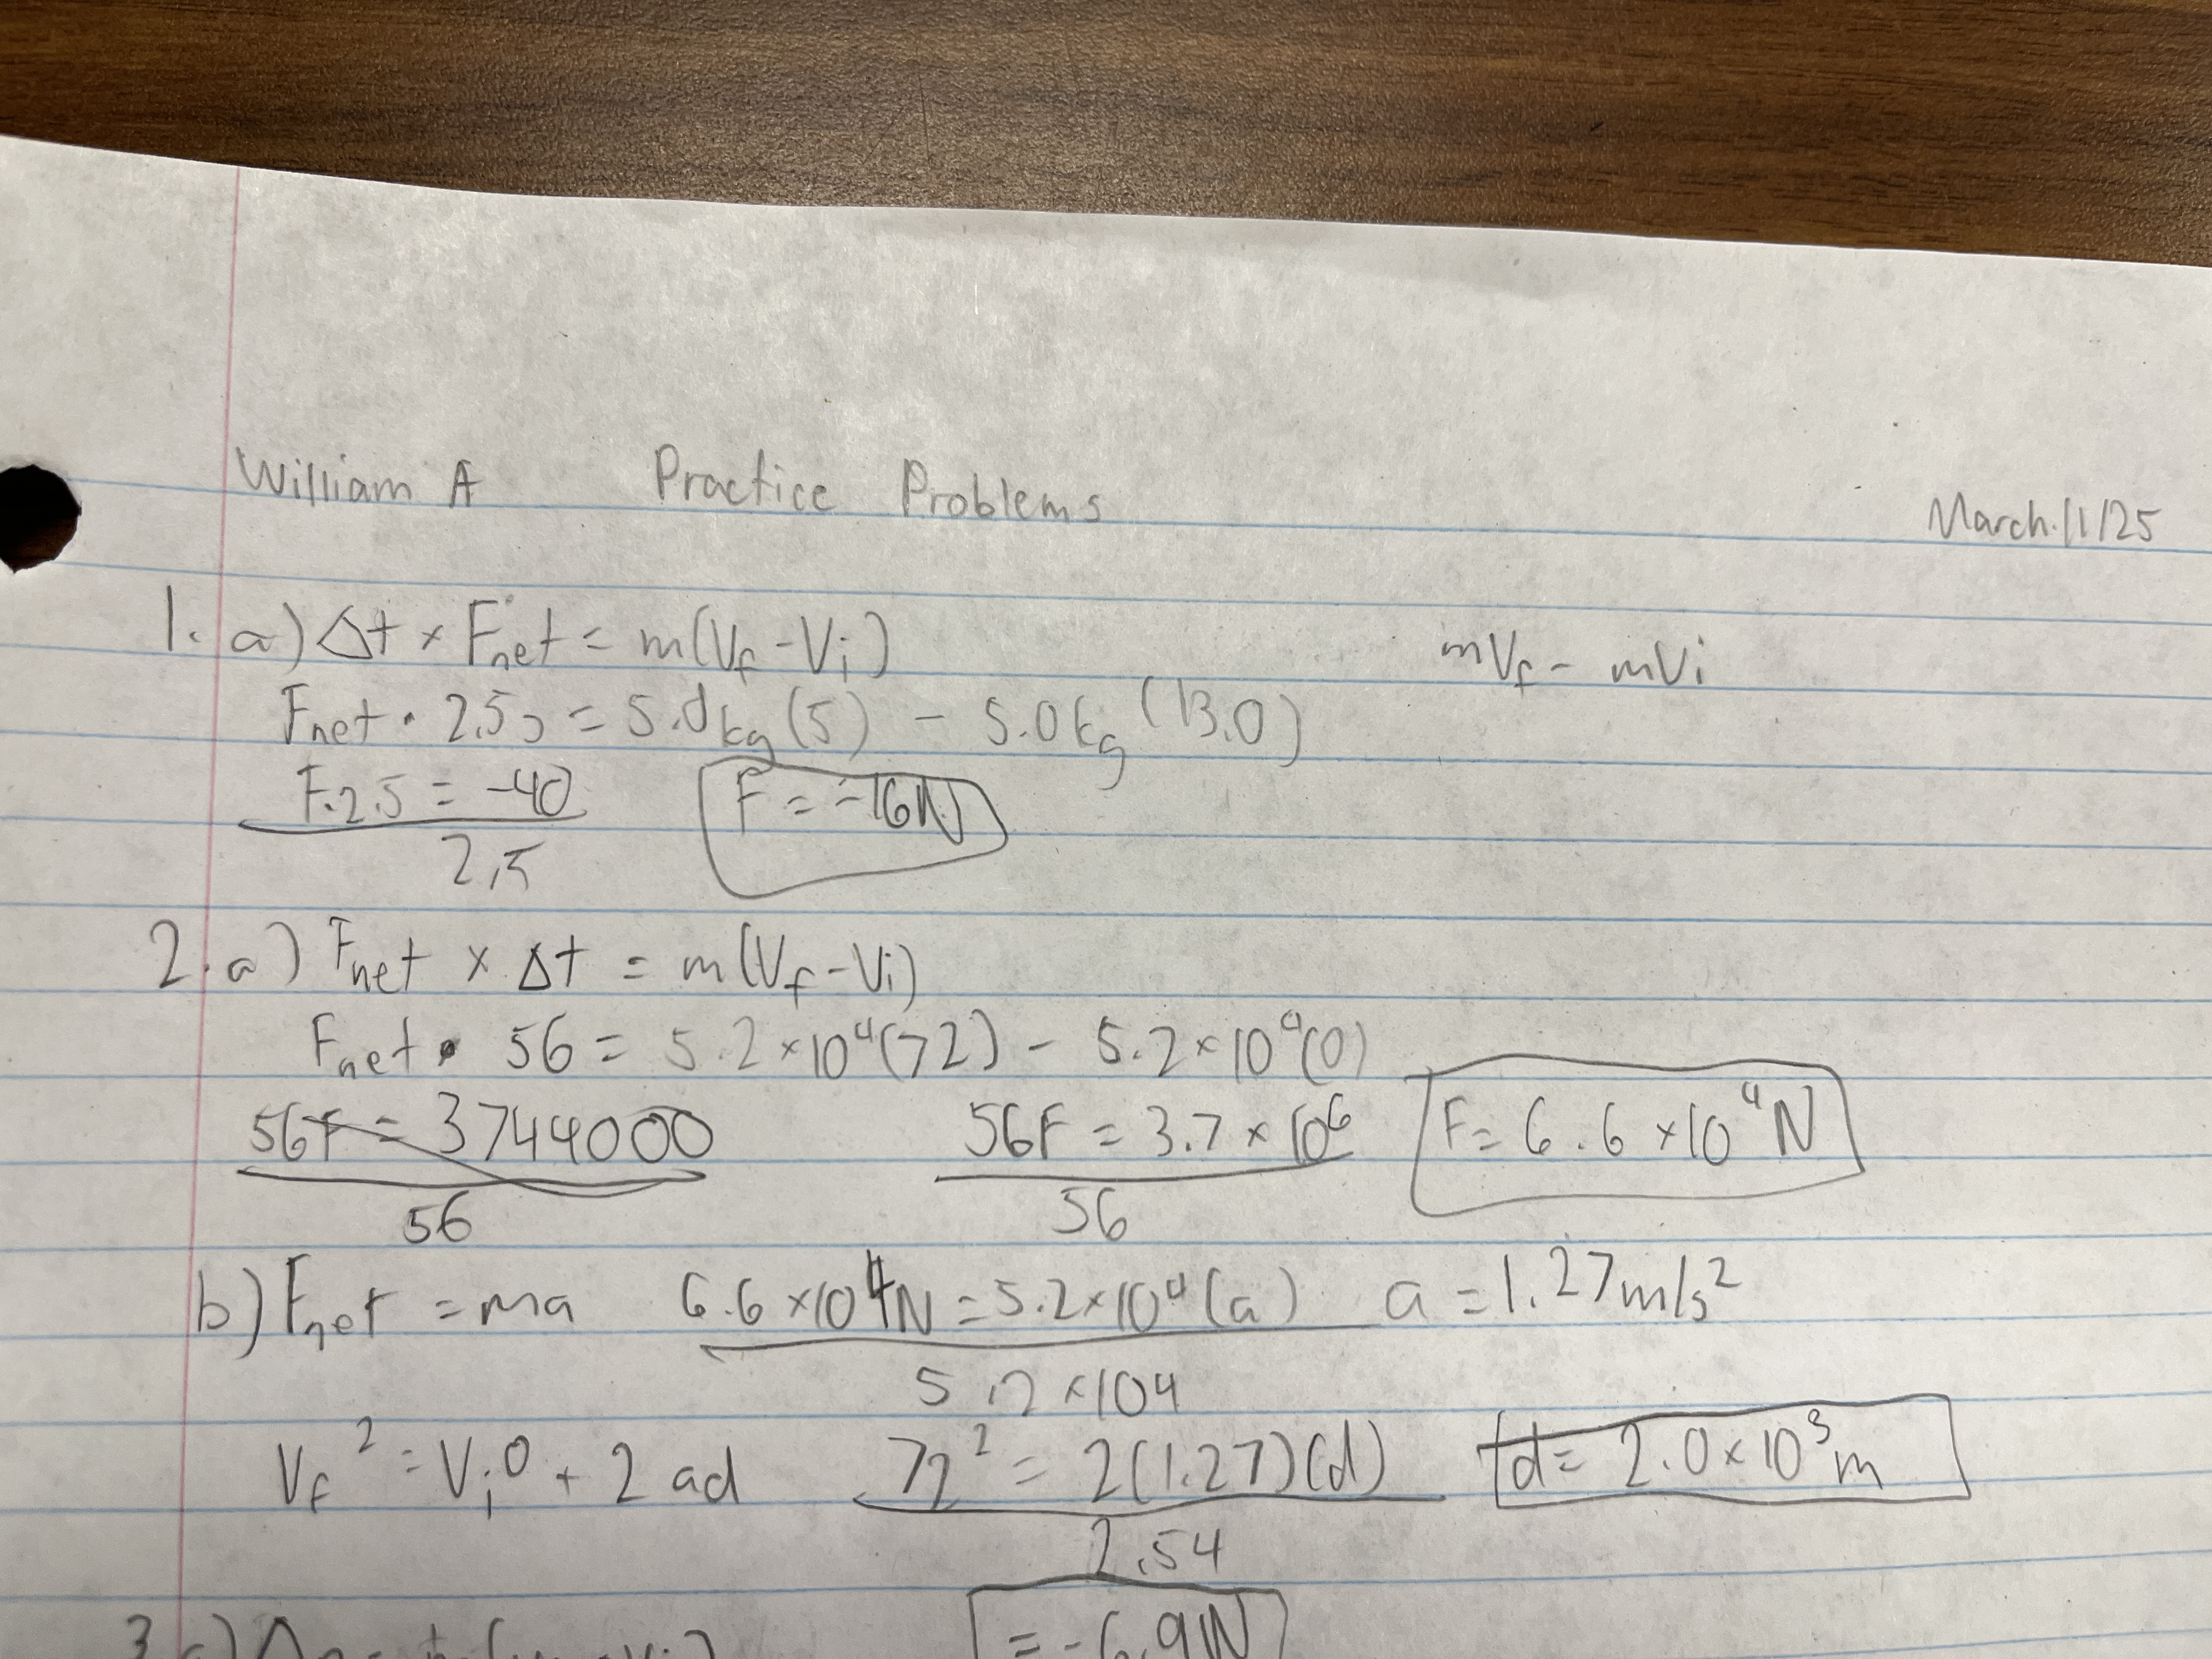 William A Practice Problems March.11/25
1. a) Δt × Fnet = m(Vf - Vi) mVf - mVi
Fnet · 2.5s = 5.0kg (5) - 5.0kg (13.0)
F·2.5 = -40 F = -16N
2.5
2.a) Fnet × Δt = m(Vf - Vi)
Fnet · 56 = 5.2×10⁴(72) - 5.2×10⁴(0)
56F = 3744000 56F = 3.7 × 10⁶ F = 6.6 ×10⁴N
56 56
b) Fnet = ma 6.6 ×10⁴N = 5.2×10⁴(a) a = 1.27m/s²
5.2 ×104
Vf² = Vi0 + 2 ad 72² = 2(1.27)(d) d = 2.0×10³m
2.54
= -6.9N
3.